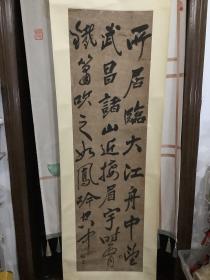 所居臨大江舟中望
武昌諸山近接眉宇時
鐵篴吹之如鳳吟